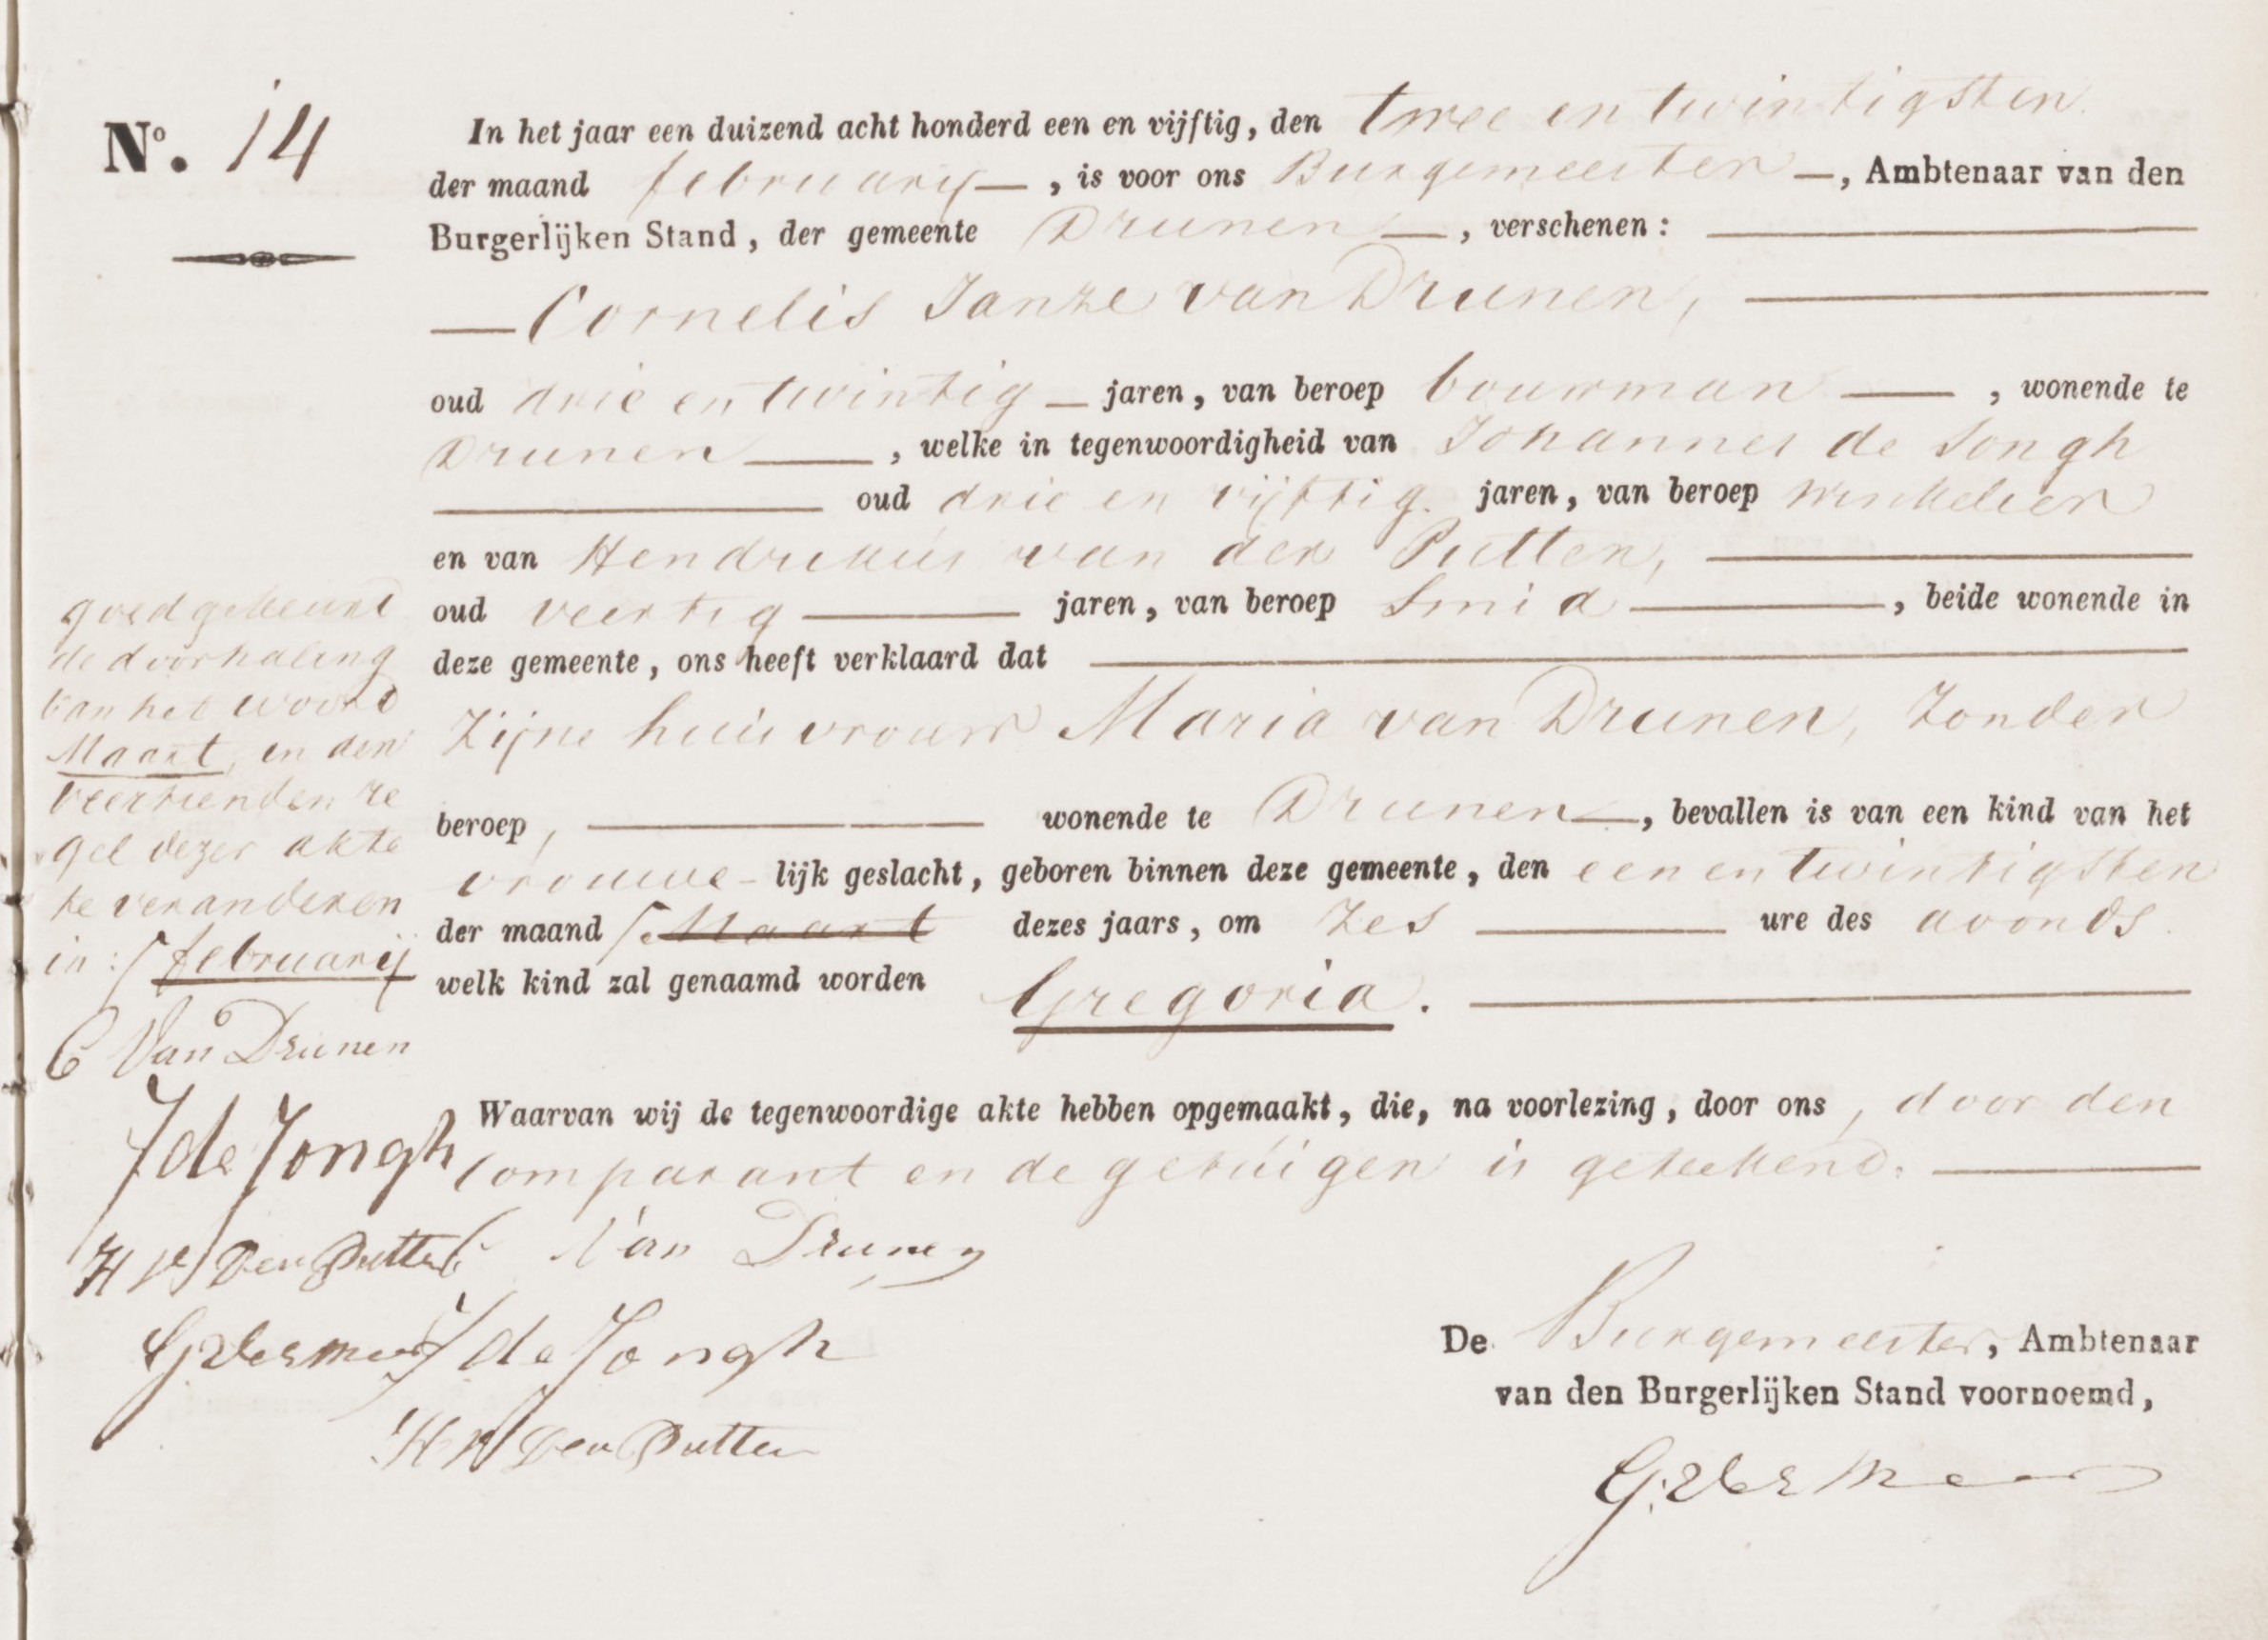 No. 14
In het jaar een duizend acht honderd een en vijftig, den twee en twintigsten
der maand februarij —, is voor ons Burgemeester —, Ambtenaar van den
Burgerlijken Stand, der gemeente Drunen —, verschenen: —
— Cornelis Janze van Drunen, —
oud drie en twintig — jaren, van beroep bouwman —, wonende te
Drunen —, welke in tegenwoordigheid van Johannes de Jongh
— oud drie en vijftig jaren, van beroep winkelier
en van Hendrikus van der Putten, —
oud veertig — jaren, van beroep Smid —, beide wonende in
deze gemeente, ons heeft verklaard dat —
Zijne huisvrouw Maria van Drunen, Zonder
beroep, — wonende te Drunen —, bevallen is van een kind van het
vrouwe-lijk geslacht, geboren binnen deze gemeente, den een en twintigsten
der maand Maart dezes jaars, om Zes — ure des avonds.
welk kind zal genaamd worden Gregoria. —
Waarvan wij de tegenwoordige akte hebben opgemaakt, die, na voorlezing, door ons, door den
Comparant en de getuigen is geteekend. —
C Van Drunen
J de Jongh
H V Den Putten
De Burgemeester, Ambtenaar
van den Burgerlijken Stand voornoemd,
G. Vermeer
goedgekeurd
de doorhaling
van het woord
Maart, in den
veertienden re
gel dezer akte
te veranderen
in: februarij
C Van Drunen
J de Jongh
H V Den Putten
G Vermeer